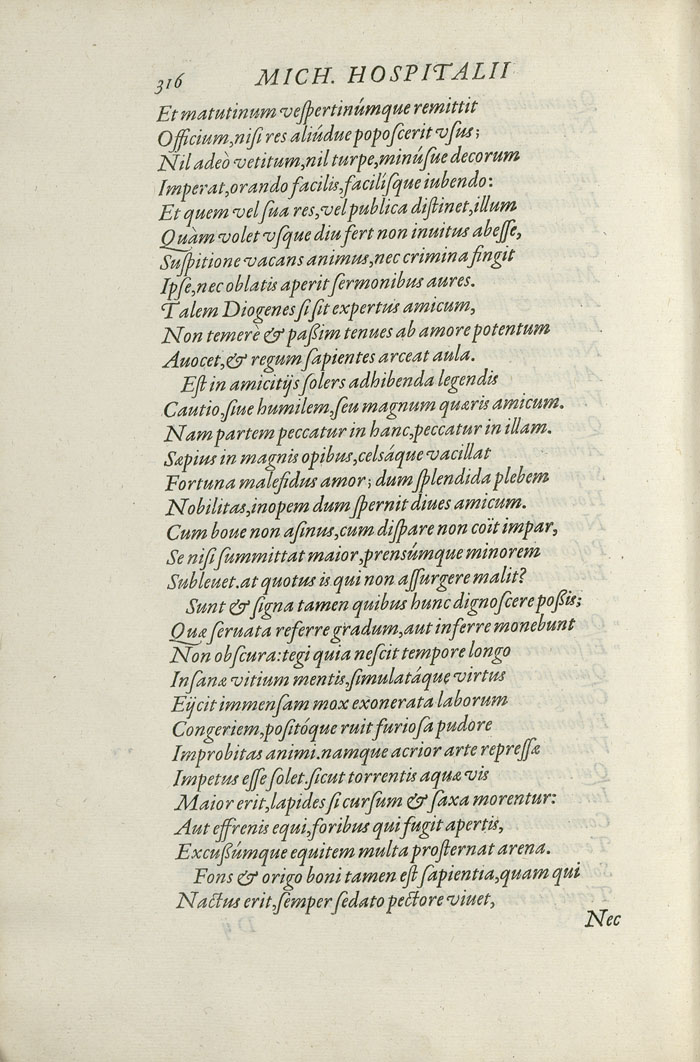 316 MICH. HOSPITALII
Et matutinum veſpertinúmque remittit
Officium,niſi res aliúdue popoſcerit vſus;
Nil adeò vetitum,nil turpe,minúſue decorum
Imperat,orando facilis,facilíſque iubendo:
Et quem vel ſua res,vel publica diſtinet,illum
Quàm volet vſque diu fert non inuitus abeſſe,
Suſpitione vacans animus,nec crimina fingit
Ipſe,nec oblatis aperit ſermonibus aures.
Talem Diogenes ſi ſit expertus amicum,
Non temerè & paßim tenues ab amore potentum
Auocet,& regum ſapientes arceat aula.
Eſt in amicitijs ſolers adhibenda legendis
Cautio,ſiue humilem,ſeu magnum quæris amicum.
Nam partem peccatur in hanc,peccatur in illam.
Sæpius in magnis opibus,celsáque vacillat
Fortuna maleſidus amor; dum ſplendida plebem
Nobilitas,inopem dum ſpernit diues amicum.
Cum boue non aſinus,cum diſpare non coït impar,
Se niſi ſummittat maior,prensúmque minorem
Subleuet.at quotus is qui non aſſurgere malit?
Sunt & ſigna tamen quibus hunc dignoſcere poßis;
Quæ ſeruata referre gradum,aut inferre monebunt
Non obſcura:tegi quia neſcit tempore longo
Inſanæ vitium mentis,ſimulatáque virtus
Eijcit immenſam mox exonerata laborum
Congeriem,poſitóque ruit furioſa pudore
Improbitas animi.namque acrior arte repreſſæ
Impetus eſſe ſolet.ſicut torrentis aquæ vis
Maior erit,lapides ſi curſum & ſaxa morentur:
Aut effrenis equi,foribus qui fugit apertis,
Excußúmque equitem multa proſternat arena.
Fons & origo boni tamen eſt ſapientia,quam qui
Nactus erit,ſemper ſedato pectore viuet,
Nec